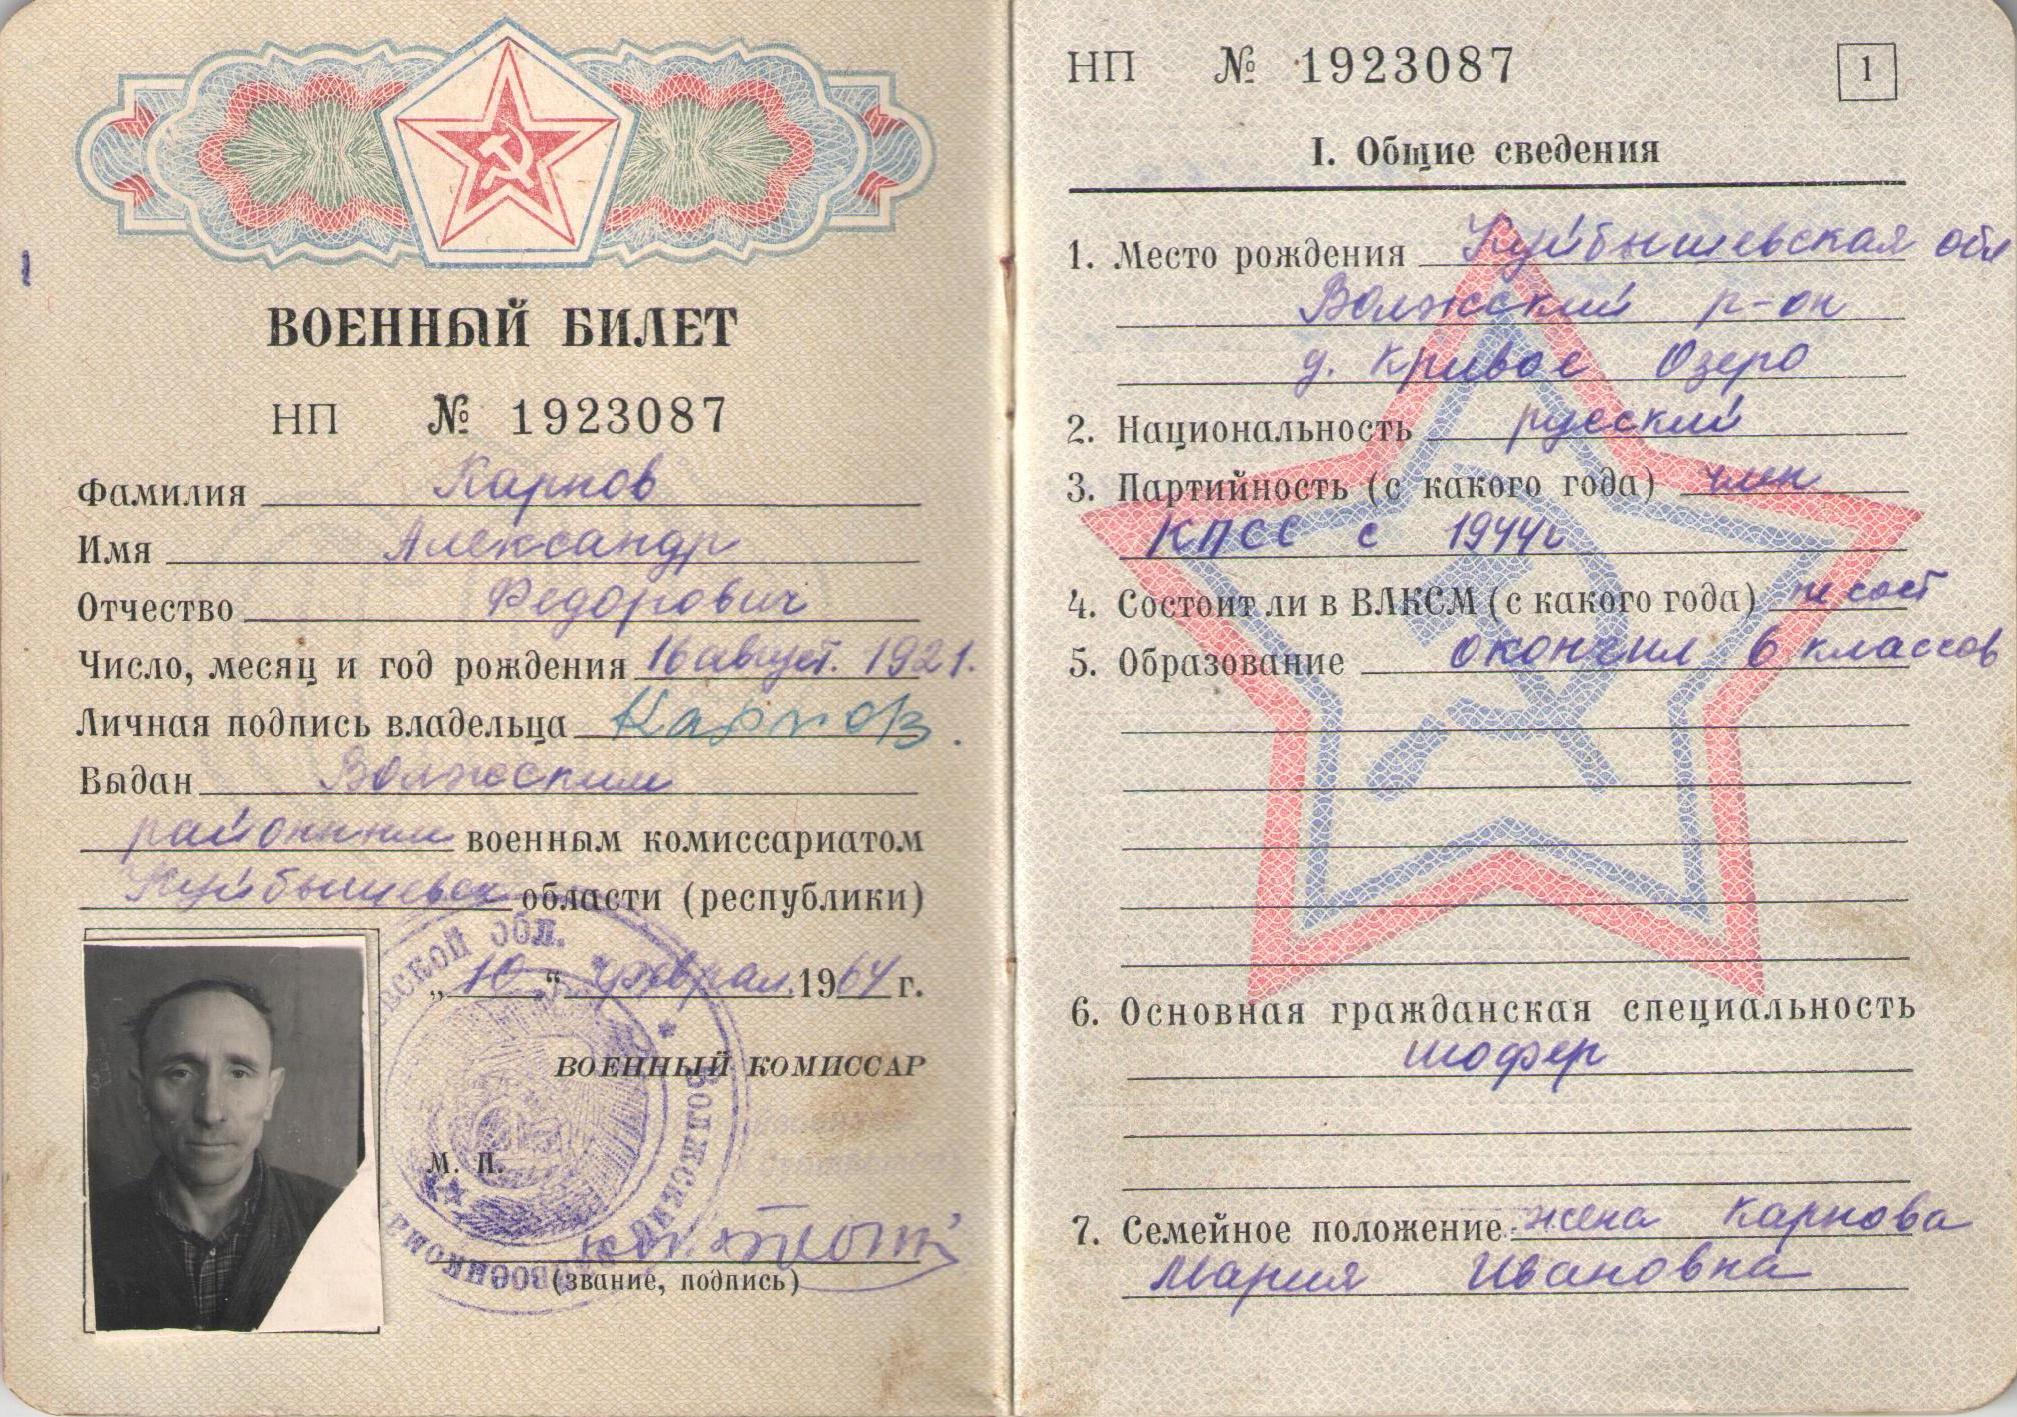 ВОЕННЫЙ БИЛЕТ
НП № 1923087
Фамилия Карпов
Имя Александр
Отчество Федорович
Число, месяц и год рождения 16 август. 1921.
Личная подпись владельца Карпов.
Выдан Волжским
районным военным комиссариатом
Куйбышевск области (республики)
„10“ феврал. 1964 г.
ВОЕННЫЙ КОМИССАР
М. П.
(звание, подпись)
НП № 1923087
1
I. Общие сведения
1. Место рождения Куйбышевская обл
Волжский р-он
д. Кривое Озеро
2. Национальность русский
3. Партийность (с какого года) член
КПСС с 1944г
4. Состоит ли в ВЛКСМ (с какого года) не сост
5. Образование окончил 6 классов
6. Основная гражданская специальность
шофер
7. Семейное положение жена Карпова
Мария Ивановна